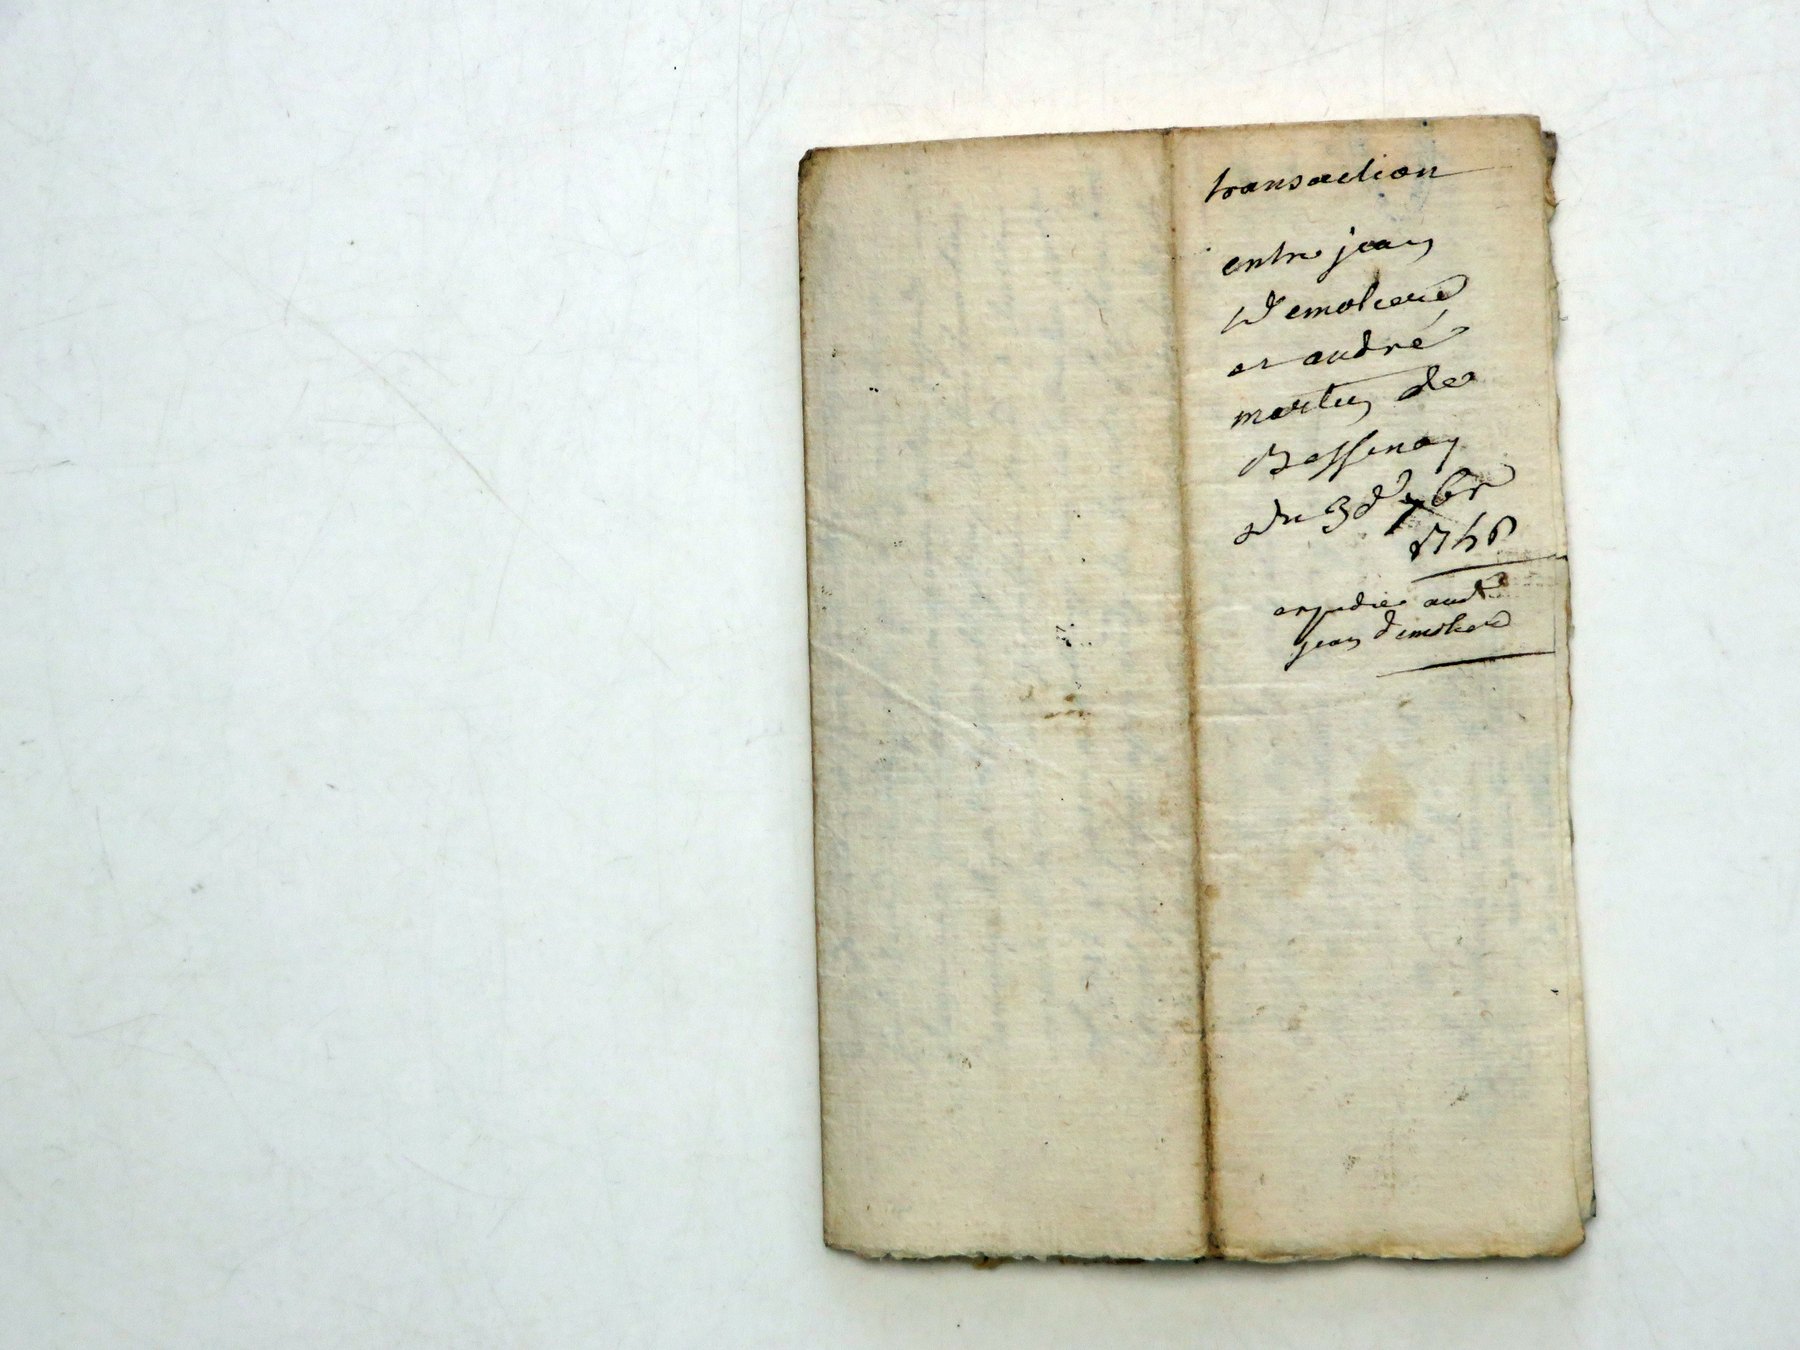 transaction
entre jean
demoliere
et andré
martin de
Bassenay
du 3e 7bre
1746
expedie aud
jean demoliere